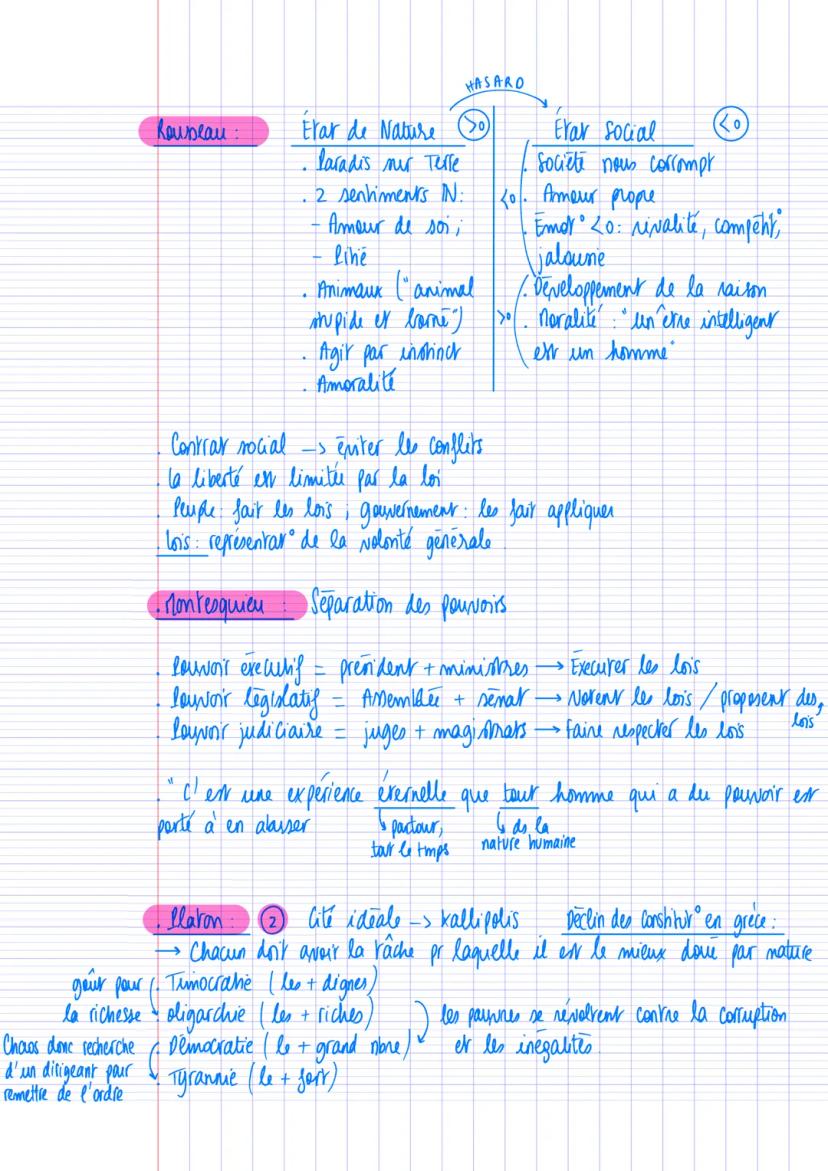 HASARD
Rousseau :
État de Nature >0
. Paradis sur Terre
. 2 sentiments IN:
- Amour de soi ;
- Pitié
. Animaux ("animal
stupide et borné")
. Agit par instinct
. Amoralité
État Social <0
. Société nous corrompt
<0 . Amour propre
. Émot° <0 : rivalité, compétit°,
jalousie
. Développement de la raison
>0 . Moralité : "un être intelligent
est un homme"
. Contrat social -> éviter les conflits
. la liberté est limitée par la loi
. Peuple : fait les lois ; gouvernement : les fait appliquer
. Lois : représentat° de la volonté générale
. Montesquieu : Séparation des pouvoirs
. Pouvoir éxécutif = président + ministres → Éxécuter les lois
. Pouvoir législatif = Assemblée + sénat → Votent les lois / proposent des
lois
. Pouvoir judiciaire = juges + magistrats → Faire respecter les lois
. "C'est une expérience éternelle que tout homme qui a du pouvoir est
porté à en abuser
↳ partout,
tout le tmps
↳ ds la
nature humaine
. Platon : 2 Cité idéale -> Kallipolis Déclin des constitut° en grèce :
→ Chacun doit avoir la tâche pr laquelle il est le mieux doué par nature
goût pour
la richesse
. Timocratie (les + dignes)
. oligarchie (les + riches)
les pauvres se révoltent contre la corruption
et les inégalités.
Chaos donc recherche
d'un dirigeant pour
remettre de l'ordre
. Démocratie (le + grand nbre)
. Tyrannie (le + fort)